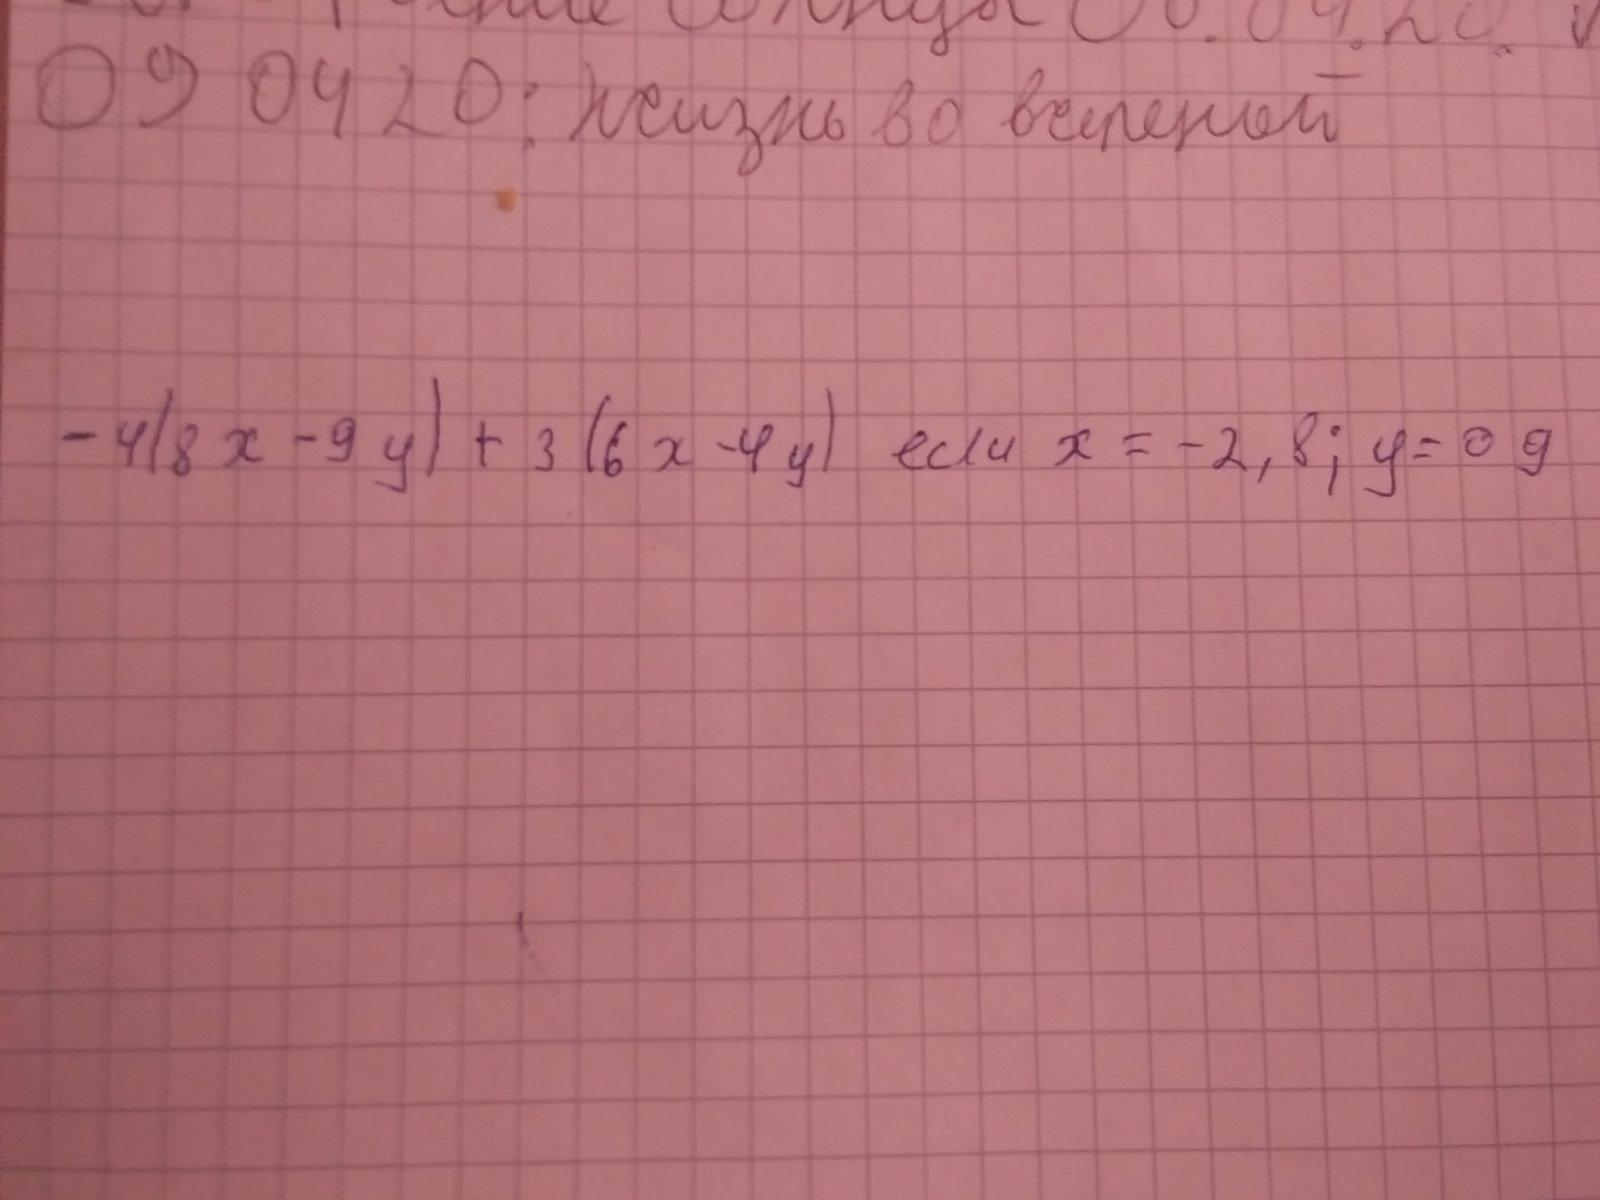 09 04 20: Жизнь во вселеной
-4(8x-9y)+3(6x-4y) если x=-2,8; y=0 9